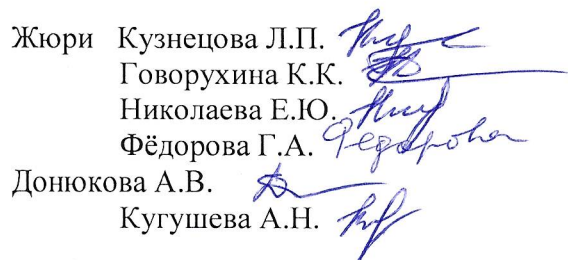 Жюри Кузнецова Л.П.
Говорухина К.К.
Николаева Е.Ю.
Фёдорова Г.А. Федорова
Донюкова А.В.
Кугушева А.Н.